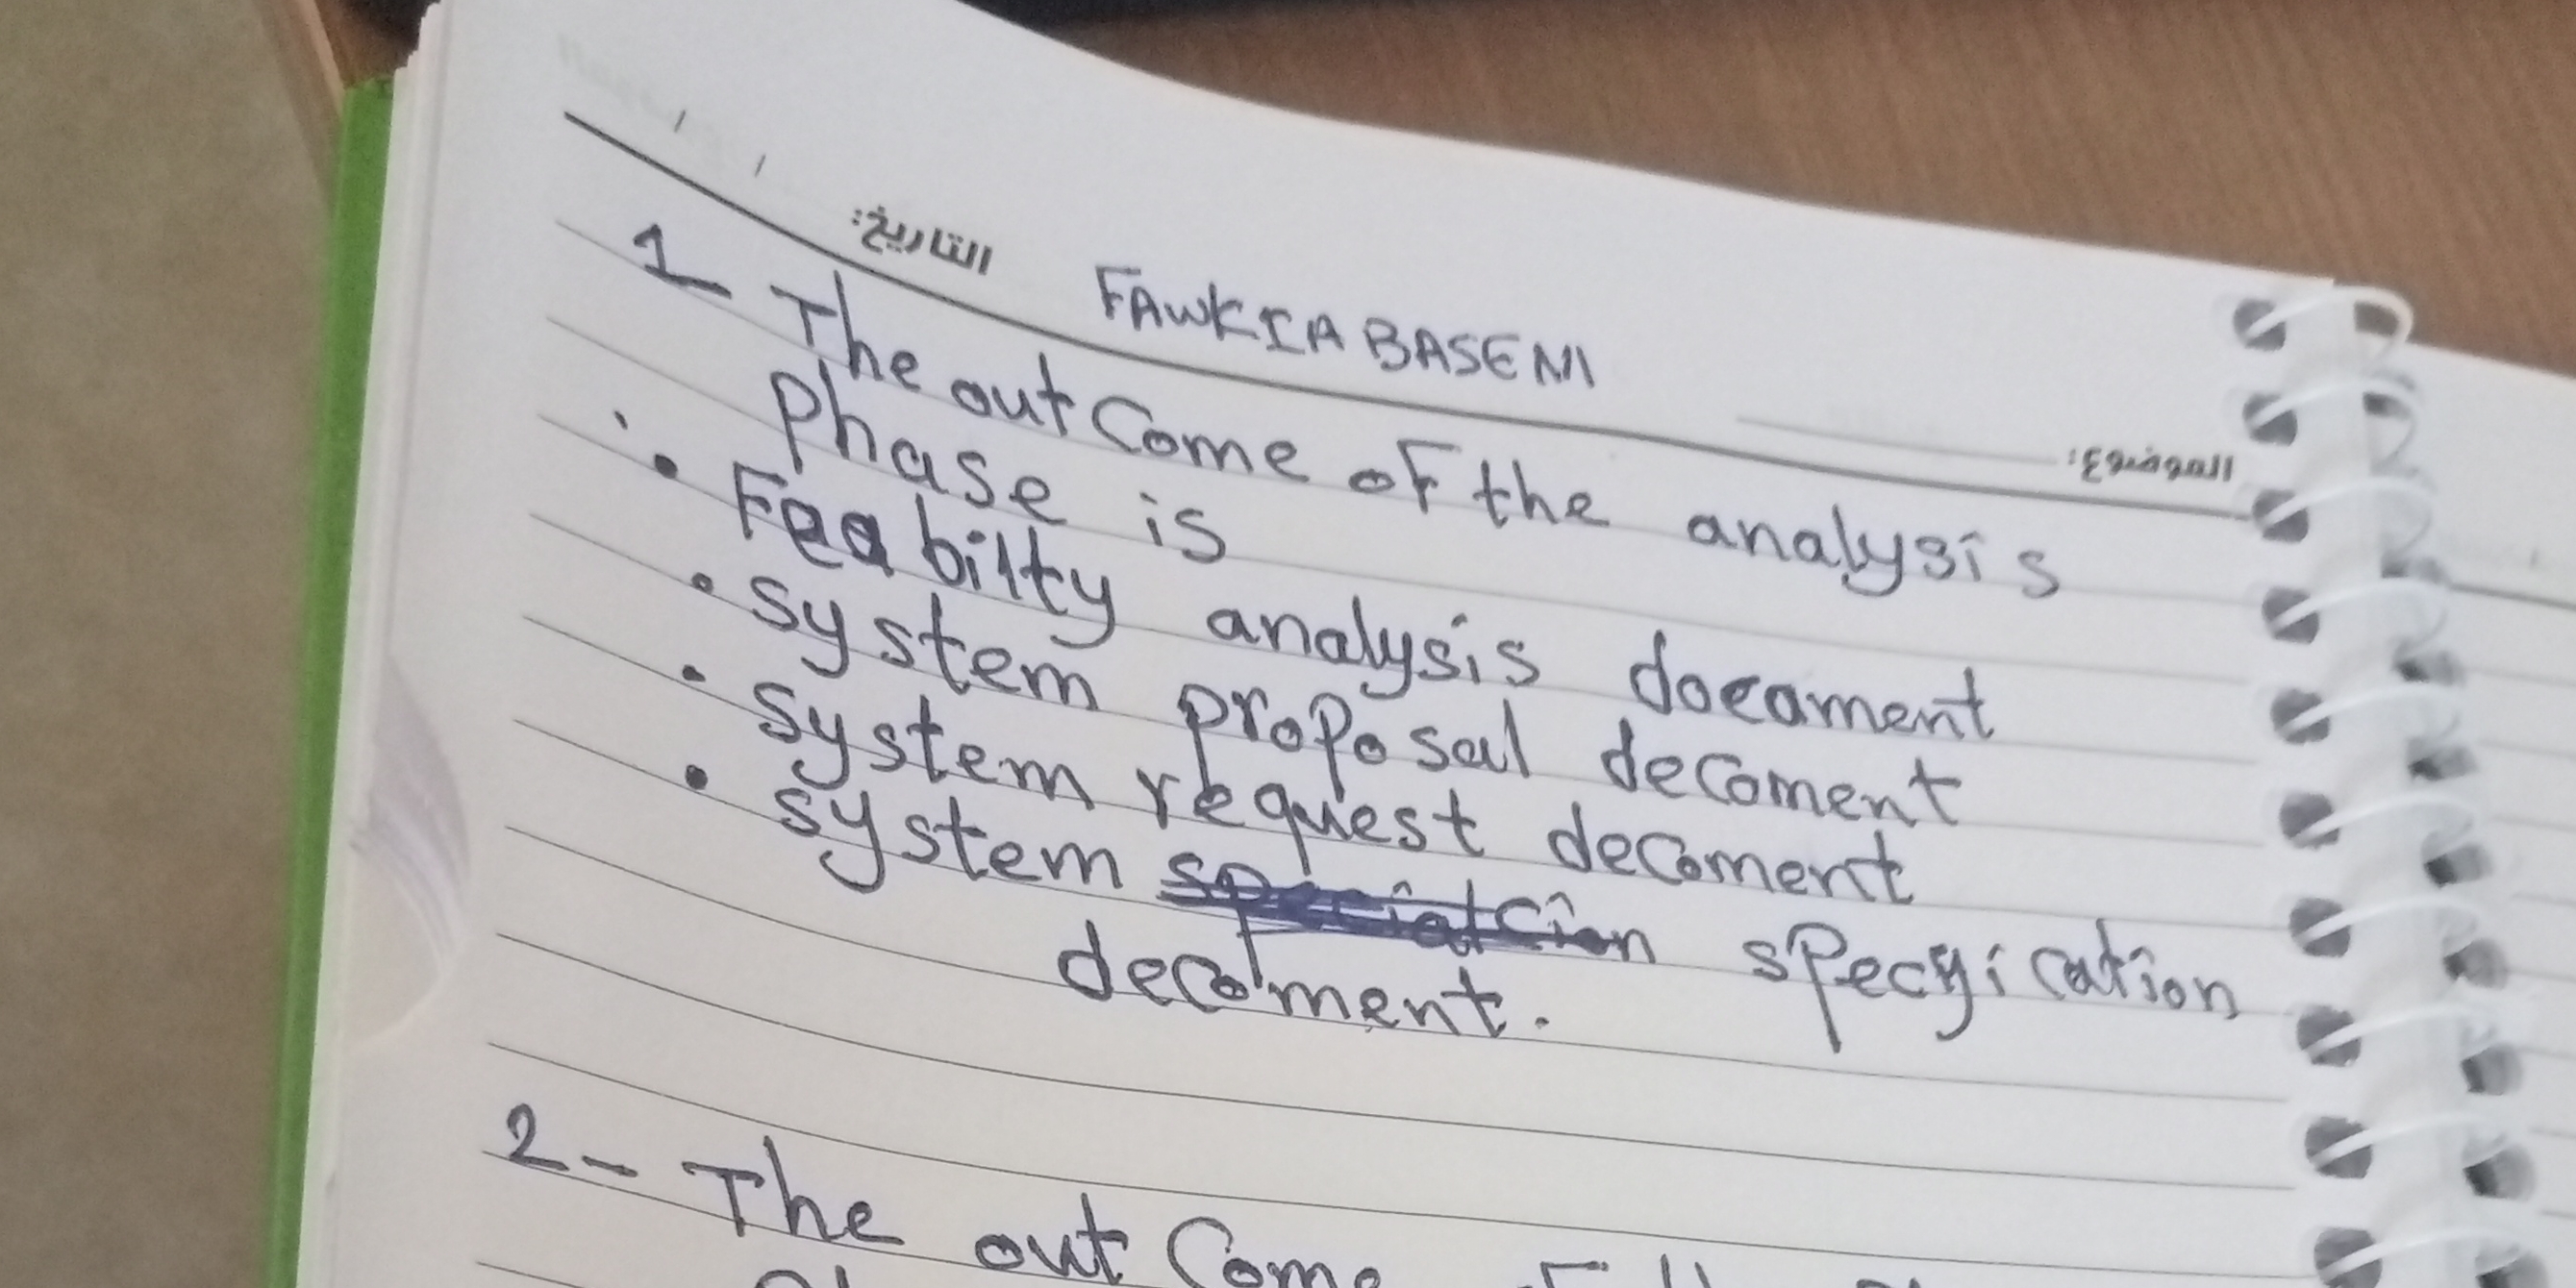 التاريخ: / /
FAWKIA BASEM
الموضوع:
1- The outcome of the analysis
Phase is
• Feabilty analysis docament
• system proposal decoment
• system request decoment
• system specification
decoment.
2- The out come